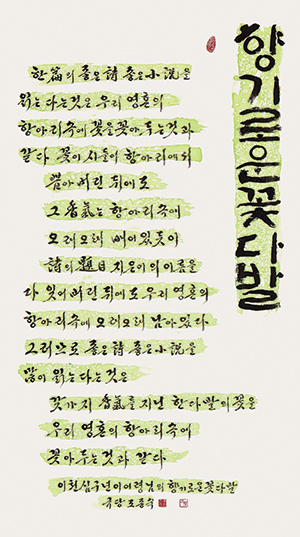 향기로운 꽃다발
한 篇의 좋은 詩 좋은 小說을
읽는다는 것은 우리 영혼의
항아리 속에 꽃을 꽂아 두는 것과
같다 꽃이 시들어 항아리에서
뽑아 버린 뒤에도
그 香氣는 항아리 속에
오래오래 배어 있듯이
詩의 題目 지은이의 이름을
다 잊어 버린 뒤에도 우리 영혼의
항아리 속에 오래오래 남아있다
그러므로 좋은 詩 좋은 小說을
많이 읽는다는 것은
꽃가지 香氣를 지닌 한 다발의 꽃을
우리 영혼의 항아리 속에
꽂아 두는 것과 같다
이천십구년 이어령님의 향기로운 꽃다발
조종숙